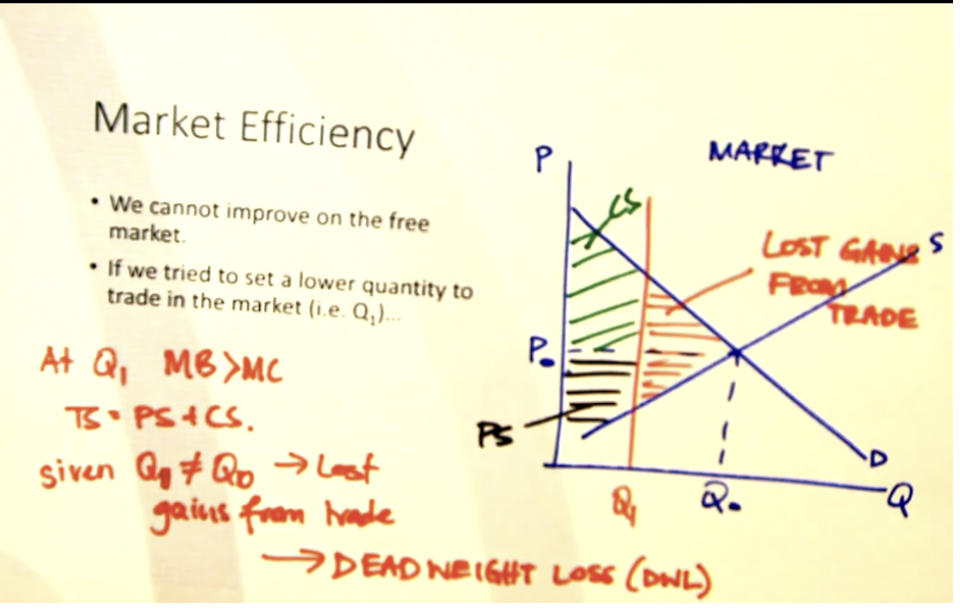 Market Efficiency
• We cannot improve on the free
market.
• If we tried to set a lower quantity to
trade in the market (i.e. Q₁)...
At Q₁ MB>MC
TS = PS + CS.
given Q₁ ≠ Q₀ → Lost
gains from trade
→ DEADWEIGHT LOSS (DWL)
MARKET
P
CS
S
LOST GAINS
FROM
TRADE
P₀
PS
D
Q₁
Q₀
Q